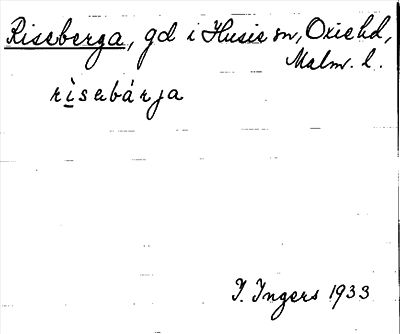 Riseberga, gd i Husie sn, Oxie hd,
Malm. l.
rìsebárja
I. Ingers 1933